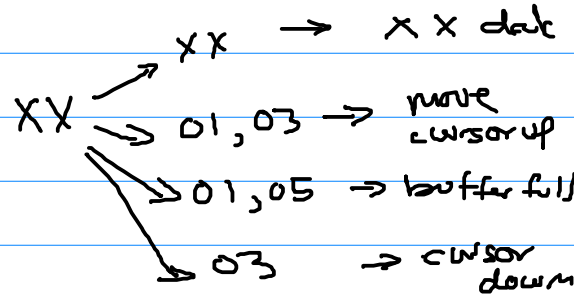 XX → XX dark
XX
01,03 → move
cursor up
01,05 → buffer full
03 → cursor
down